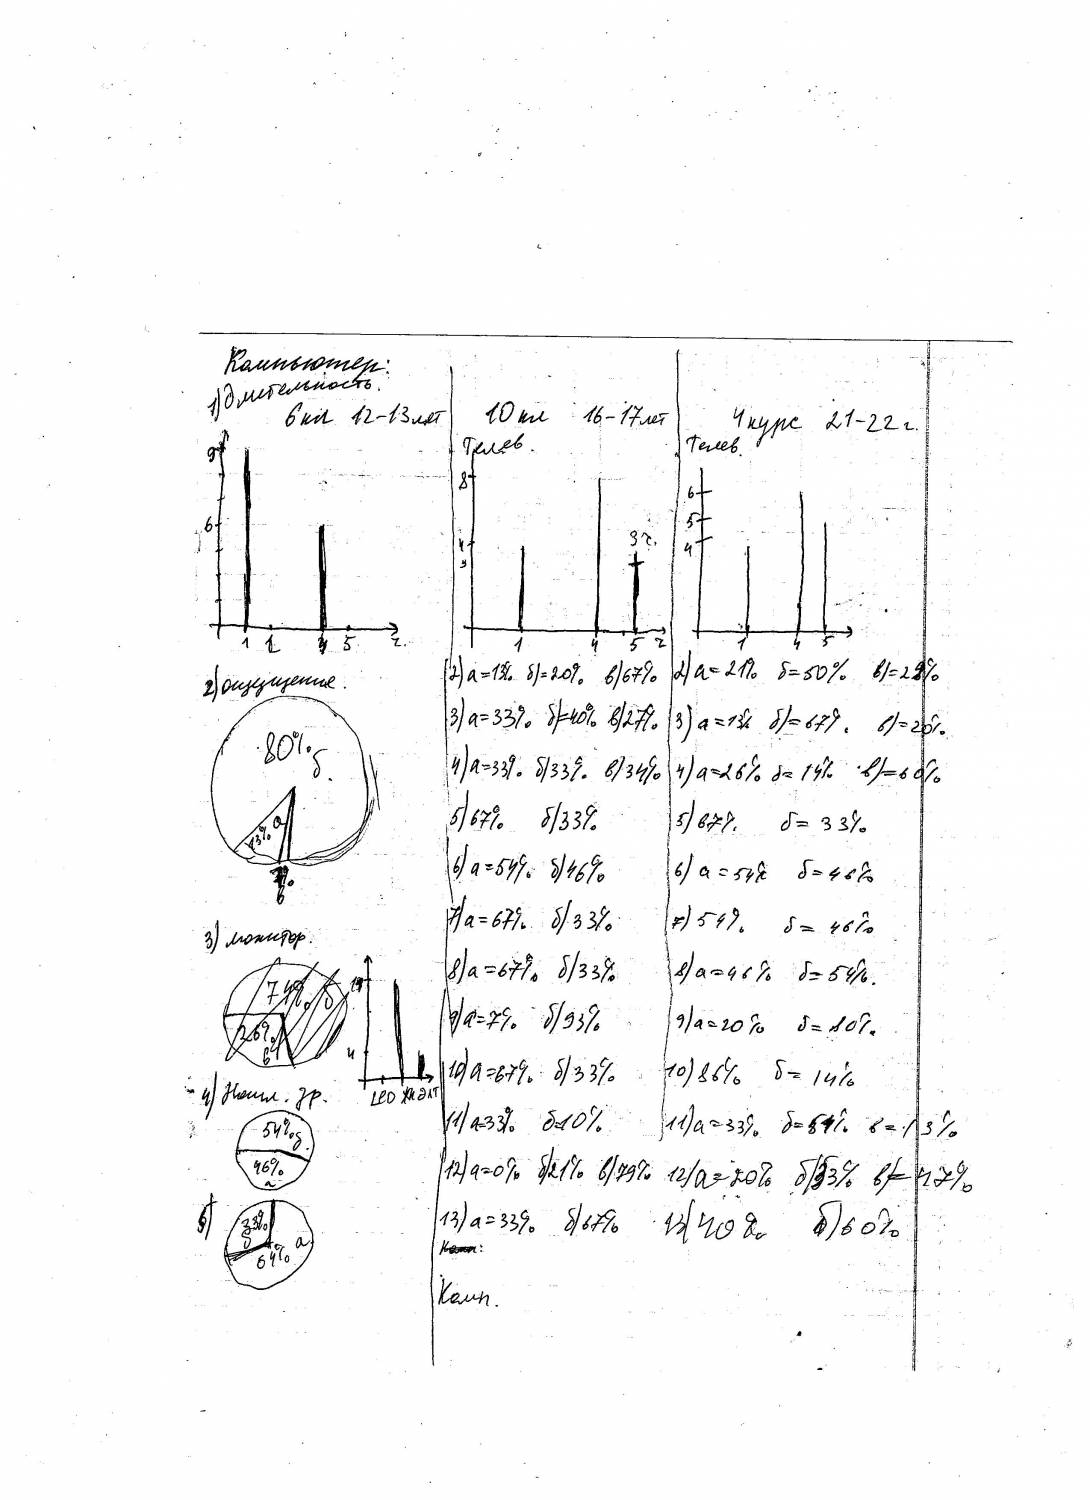 Компьютер:
1) длительность.
6 кл 12-13 лет
9
6
1 2 4 5 г.
2) ощущение.
80% б.
13% а
7% в
3) монитор.
74% б
26% в
4
LED ЖК ЭЛТ
4) Накл. зр.
54% б.
46% а
5)
33% б
64% а
10 кл 16-17 лет
Телев.
8
4
3
3 г.
1 4 5 г
2) а=13% б)=20% в) 67%
3) а=33% б)=40% в) 27%
4) а=33% б) 33% в) 34%
5) 67% б) 33%
6) а=54% б) 46%
7) а=67% б) 33%
8) а=67% б) 33%
9) а=7% б) 93%
10) а=67% б) 33%
11) а=33% б=10%
12) а=0% б) 21% в) 79%
13) а=33% б) 67%
Комп.
4 курс 21-22 г.
Телев.
6
5
4
1 4 5
2) а=21% б=50% в)=29%
3) а=13% б)=67% в)=20%
4) а=26% б=14% в)=60%
5) 67% б=33%
6) а=54% б=46%
7) 54% б=46%
8) а=46% б=54%.
9) а=20% б=80%.
10) 86% б=14%
11) а=33% б=54% в=13%
12) а=20% б) 33% в)=47%
13) 40% б) 60%